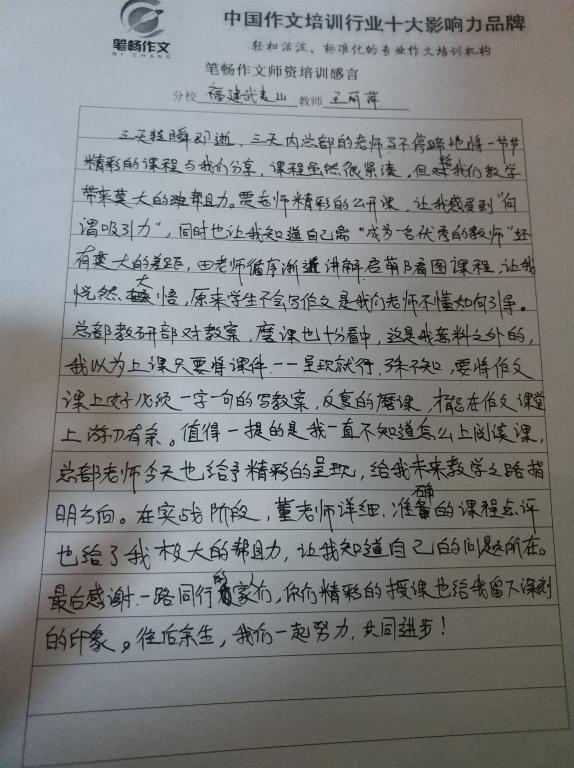 笔畅作文
BI CHANG
中国作文培训行业十大影响力品牌
轻松活泼、标准化的专业作文培训机构
笔畅作文师资培训感言
分校 福建武夷山 教师 王丽萍
三天转瞬即逝,三天内总部的老师马不停蹄地将一节节
精彩的课程与我们分享,课程虽然很紧凑,但给我们教学
带来莫大的帮助。贾老师精彩的公开课,让我感受到“何
谓吸引力”,同时也让我知道自己离“成为一名优秀的教师”还
有莫大的差距,田老师循序渐进讲解启萌阶看图课程,让我
恍然大悟,原来学生不会写作文是我们老师不懂如何引导。
总部教研部对教案,磨课也十分看中,这是我意料之外的,
我以为上课只要将课件一一呈现就行,殊不知,要将作文
课上好必须一字一句的写教案,反复的磨课,才能在作文课堂
上游刃有余。值得一提的是我一直不知道怎么上阅读课,
总部老师今天也给予精彩的呈现,给我未来教学之路指
明方向。在实战阶段,董老师详细,准确的课程点评
也给了我极大的帮助,让我知道自己的问题所在。
最后感谢一路同行的家人们,你们精彩的授课也给我留下深刻
的印象。往后余生,我们一起努力,共同进步!